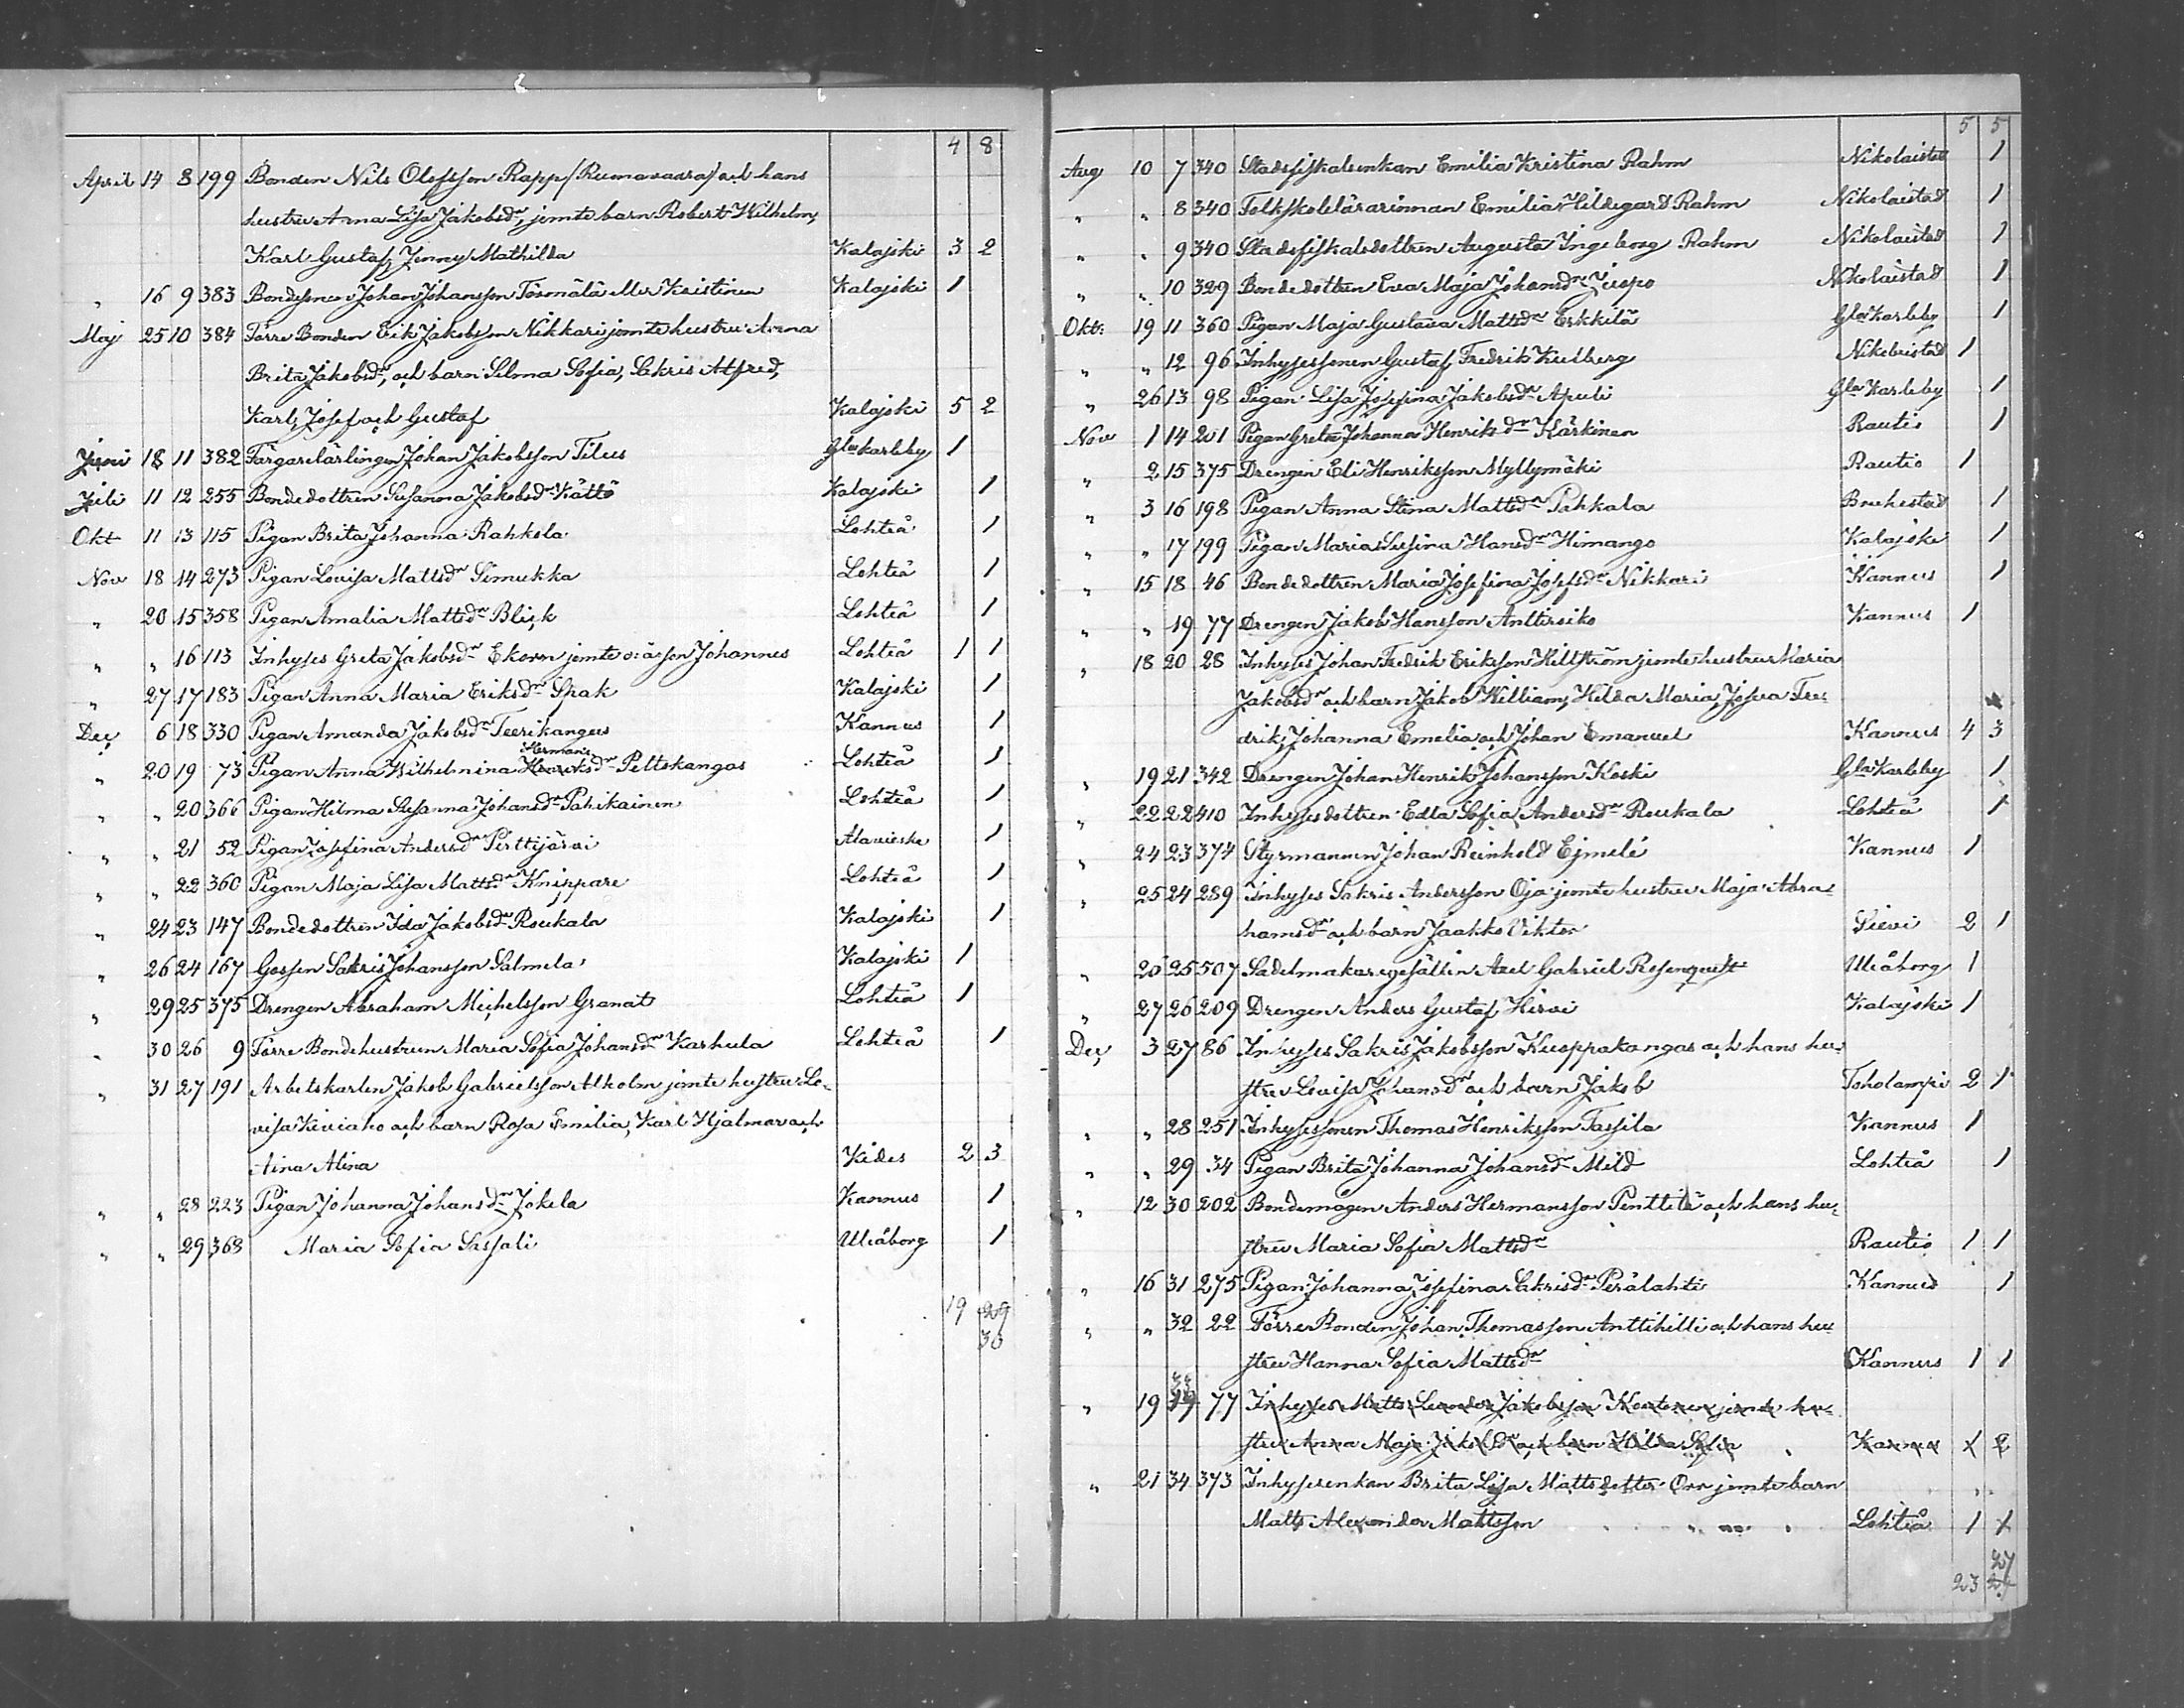 4 8
April 14 8 199 Bonden Nils Olofsson Rapp /Rumavaara/ och hans
hustru Anna Lisa Jakobsdr, jemte barn Robert Wilhelm,
Karl Gustaf, Jenny Mathilda Kalajoki 3 2
" 16 9 383 Bondesonen Johan Johansson Kalajoki 1
Maj 25 10 384 Förre Bonden Erik Jakobsson Nikkari jemte hustru Anna
Brita Jakobsdr, och barn Selma Sofia, Sakris Alfred,
Karl, Josef och Gustaf Kalajoki 5 2
Juni 18 11 382 Färgarelärlingen Johan Jakobsson Tilus Gla Karleby 1
Juli 11 12 255 Bondedottren Susanna Jakobsdr Kättö Kalajoki 1
Okt 11 13 115 Pigan Brita Johanna Rahkola Lohteå 1
Nov 18 14 273 Pigan Lovisa Mattsdr Simukka Lohteå 1
" 20 15 358 Pigan Amalia Mattsdr Blick Lohteå 1
" " 16 113 Inhyses Greta Jakobsdr Ekorn jemte o:ä son Johannes Lohteå 1 1
" 27 17 183 Pigan Anna Maria Eriksdr Spak Kalajoki 1
Dec 6 18 330 Pigan Amanda Jakobsdr Teerikangas Kannus 1
Hermans
" 20 19 73 Pigan Anna Wilhelmina Henriksdr Peltokangas Lohteå 1
" " 20 366 Pigan Hilma Susanna Johansdr Pahikainen Lohteå 1
" " 21 52 Pigan Josefina Andersdr Pirttijärvi Alavieska 1
" " 22 360 Pigan Maja Lisa Mattsdr Knippare Lohteå 1
" 24 23 147 Bondedottren Ida Jakobsdr Roukala Kalajoki 1
" 26 24 167 Gossen Sakris Johansson Salmela Kalajoki 1
" 29 25 375 Drengen Abraham Michelsson Granat Lohteå 1
" 30 26 9 Förre Bondehustrun Maria Sofia Johansdr Karhula Lohteå 1
" 31 27 191 Arbetskarlen Jakob Gabrielsson Alholm jemte hustru Lo-
visa Kiviaho och barn Rosa Emilia, Karl Hjalmar och
Aina Alina Kides 2 3
" " 28 223 Pigan Johanna Johansdr Jokela Kannus 1
" " 29 368 Maria Sofia Sassali Uleåborg 1
19 29
30
5 5
Aug 10 7 340 Stadsfiskalsenkan Emilia Kristina Rahm Nikolaistad 1
" " 8 340 Folkskolelärarinnan Emilia Hildegard Rahm Nikolaistad 1
" " 9 340 Stadsfiskalsdottren Augusta Ingeborg Rahm Nikolaistad 1
" " 10 329 Bondedottren Eva Maja Johansdr Juopo Nikolaistad 1
Okt. 19 11 360 Pigan Maja Gustava Mattsdr Erkkilä Gla Karleby 1
" " 12 96 Inhysessonen Gustaf Fredrik Kulberg Nikolaistad 1
" 26 13 98 Pigan Lisa Josefina Jakobsdr Apuli Gla Karleby 1
Nov 1 14 201 Pigan Greta Johanna Henriksdr Kärkinen Rautio 1
" 2 15 375 Drengen Eli Henriksson Myllymäki Rautio 1
" 3 16 198 Pigan Anna Stina Mattsdr Pahkala Brahestad 1
" " 17 199 Pigan Maria Susina Hansdr Himango Kalajoki 1
" 15 18 46 Bondedottren Maria Josefina Josefsdr Nikkari Kannus 1
" " 19 77 Drengen Jakob Hansson Anttiroiko Kannus 1
" 18 20 28 Inhyses Johan Fredrik Eriksson Hillström jemte hustru Maria
Jakobsdr och barn Jakob William, Hilda Maria, Josua Fre-
drik, Johanna Emelia och Johan Emanuel Kannus 4 3
" 19 21 342 Drengen Johan Henrik Johansson Koski Gla Karleby 1
" 22 22 410 Inhysesdottren Edla Sofia Andersdr Roukala Lohteå 1
" 24 23 374 Styrmannen Johan Reinhold Ejmelé Kannus 1
" 25 24 289 Inhyses Sakris Andersson Oja jemte hustru Maja Abra-
hamsdr och barn Jaakko Viktor Sievi 2 1
" 26 25 507 Sadelmakaregesällen Axel Gabriel Rosenquist Uleåborg 1
" 27 26 209 Drengen Anders Gustaf Hirvi Kalajoki 1
Dec 3 27 86 Inhyses Sakris Jakobsson Kuoppakangas och hans hu-
stru Lovisa Johansdr och barn Jakob Toholampi 2 1
" " 28 251 Inhysessonen Thomas Henriksson Tassila Kannus 1
" " 29 34 Pigan Brita Johanna Johansdr Mild Lohteå 1
" 12 30 202 Bondemågen Anders Hermansson Penttilä och hans hu-
stru Maria Sofia Mattsdr Rautio 1 1
" 16 31 275 Pigan Johanna Josefina Sakrisdr Perälahti Kannus 1
" " 32 22 Förre Bonden Johan Thomasson Anttihilli och hans hu-
stru Hanna Sofia Mattsdr Kannus 1 1
33
" 19 19 77 Inhyses Matts Leander Jakobsson jemte hu-
stru Anna Maja Jakobsdr och barn Hilda Sofia Kannus 1 2
" 21 34 373 Inhysesenkan Brita Lisa Mattsdotter Orr jemte barn
Matts Alexander Mattsson Lohteå 1 1
27
23 27